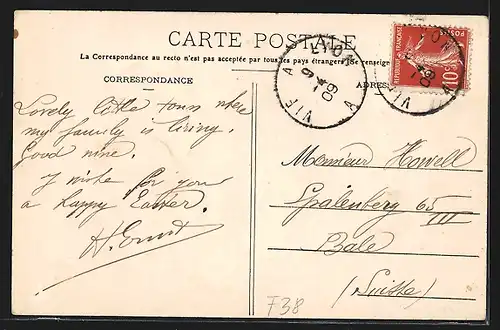 CARTE POSTALE
La Correspondance au recto n'est pas acceptée par tous les pays étrangers (Se renseigne
CORRESPONDANCE
ADRES
LYON
VIE A
09
REPUBLIQUE FRANÇAISE
10
Lovely little town where
my family is living.
Good wine.
I wishe for you
a happy Easter.
H. Ernst
Monsieur Howell
Spalenberg 65 III
Bale
(Suisse)
F38